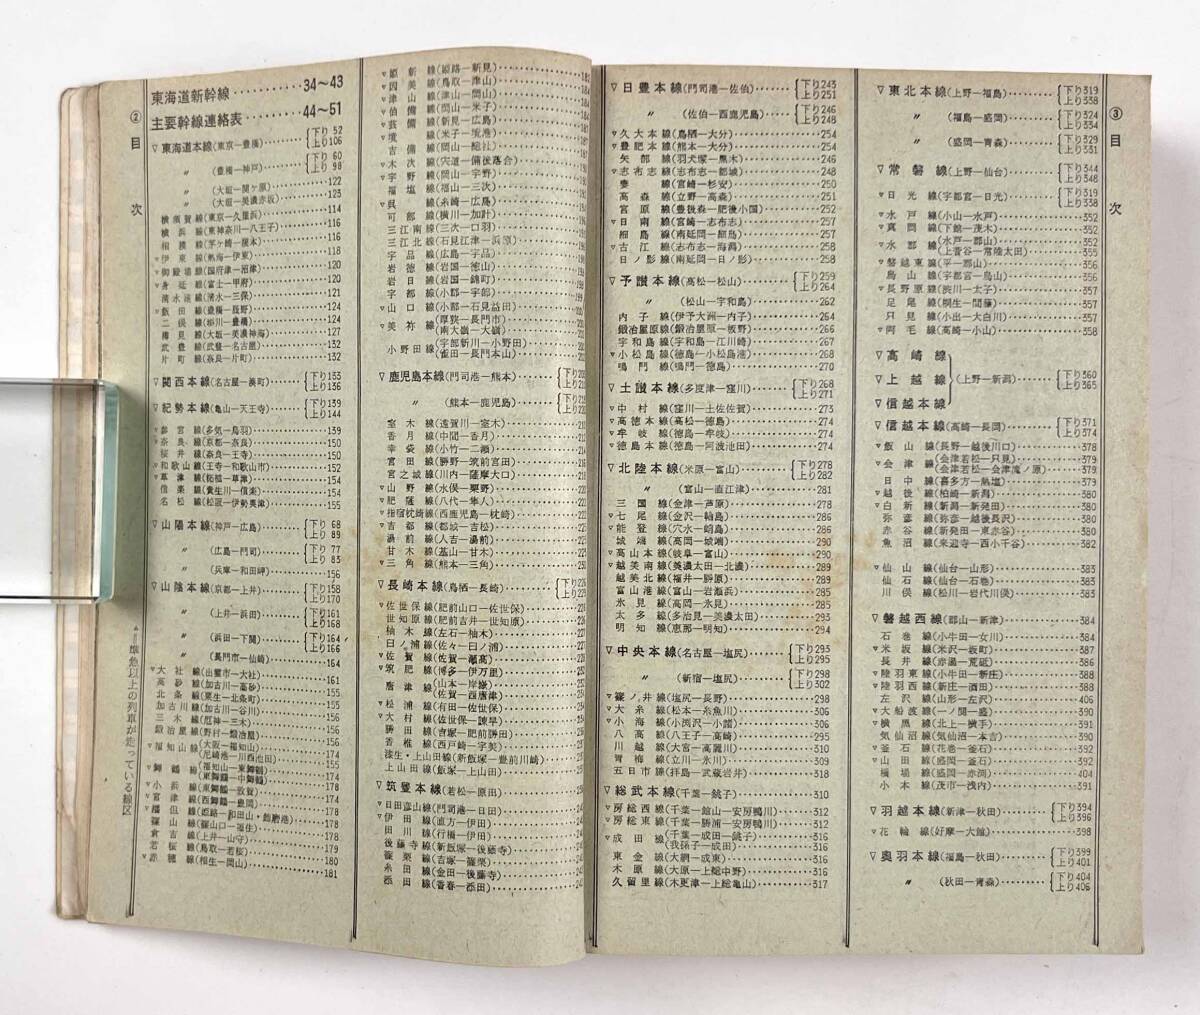 ② 目 次
東海道新幹線 34～43
主要幹線連絡表 44～51
▽東海道本線(東京―豊橋) 下り 52 上り106
〃 (豊橋―神戸) 下り 60 上り 98
〃 (大垣―関ケ原) 122
〃 (大垣―美濃赤坂) 123
横須賀線(東京―久里浜) 114
横浜線(東神奈川―八王子) 116
相模線(茅ケ崎―橋本) 116
▽伊東線(熱海―伊東) 118
▽御殿場線(国府津―沼津) 120
▽身延線(富士―甲府) 120
清水港線(清水―三保) 121
▽飯田線(豊橋―辰野) 124
二俣線(掛川―豊橋) 124
樽見線(大垣―美濃神海) 127
武豊線(大府―名古屋) 132
片町線
▽関西本線(名古屋―湊町) 下り133 上り136
▽紀勢本線(亀山―天王寺) 下り139 上り144
▽参宮線(多気―鳥羽) 139
▽奈良線(京都―奈良) 150
桜井線(奈良―王寺) 150
▽和歌山線(王寺―和歌山市) 152
▽草津線(柘植―草津) 154
信楽線(貴生川―信楽) 154
名松線(松阪―伊勢奥津) 155
▽山陽本線(神戸―広島) 下り 68 上り 89
〃 (広島―門司) 下り 77 上り 83
〃 (兵庫―和田岬) 156
▽山陰本線(京都―上井) 下り158 上り170
〃 (上井―浜田) 下り161 上り168
〃 (浜田―下関) 下り164 上り166
〃 (長門市―仙崎) 164
▽大社線(出雲市―大社) 161
高砂線(加古川―高砂) 155
北条線(粟生―北条町) 155
加古川線(加古川―谷川) 156
三木線(厄神―三木) 156
鍛冶屋線(野村―鍛冶屋) 156
▽福知山線(大阪―福知山) 174
(尼崎港―川西池田) 155
▽舞鶴線(福知山―東舞鶴) 174
(東舞鶴―中舞鶴) 174
▽小浜線(東舞鶴―敦賀) 178
▽宮津線(西舞鶴―豊岡) 174
▽播但線(姫路―和田山・飾磨港) 178
篠山線(篠山口―福住) 178
倉吉線(上井―山守) 179
若桜線(鳥取―若桜) 180
▽赤穂線(相生―岡山) 181
▲＝準急以上の列車が走っている線区
▽姫新線(姫路―新見)
▽因美線(鳥取―津山)
▽津山線(津山―岡山)
▽伯備線(岡山―米子)
▽芸備線(新見―広島)
▽境線(米子―境港)
吉備線(岡山―総社)
▽木次線(宍道―備後落合)
▽宇野線(岡山―宇野)
福塩線(福山―三次)
▽呉線(糸崎―広島)
可部線(横川―加計)
三江南線(三次―口羽)
三江北線(石見江津―浜原)
宇品線(広島―宇品)
岩徳線(岩国―徳山)
岩日線(岩国―錦町)
宇部線(小郡―宇部)
▽山口線(小郡―石見益田)
▽美祢線(厚狭―長門市)
(南大嶺―大嶺)
小野田線(宇部新川―小野田)
(雀田―長門本山)
▽鹿児島本線(門司港―熊本)
〃 (熊本―鹿児島)
室木線(遠賀川―室木)
香月線(中間―香月)
幸袋線(小竹―二瀬)
宮田線(勝野―筑前宮田)
宮之城線(川内―薩摩大口)
▽山野線(水俣―栗野)
▽肥薩線(八代―隼人)
▽指宿枕崎線(西鹿児島―枕崎)
▽吉都線(都城―吉松)
湯前線(人吉―湯前)
甘木線(基山―甘木)
▽三角線(熊本―三角)
▽長崎本線(鳥栖―長崎)
▽佐世保線(肥前山口―佐世保)
世知原線(肥前吉井―世知原)
柚木線(左石―柚木)
臼ノ浦線(佐々―臼ノ浦)
▽佐賀線(佐賀―瀬高)
▽筑肥線(博多―伊万里)
唐津線(山本―岸嶽)
(佐賀―西唐津)
▽松浦線(有田―佐世保)
▽大村線(佐世保―諫早)
勝田線(吉塚―筑前勝田)
香椎線(西戸崎―宇美)
漆生・上山田線(新飯塚―豊前川崎)
上山田線(飯塚―上山田)
▽筑豊本線(若松―原田)
▽日田彦山線(門司港―日田)
▽伊田線(直方―伊田)
田川線(行橋―伊田)
後藤寺線(新飯塚―後藤寺)
篠栗線(吉塚―篠栗)
糸田線(金田―後藤寺)
添田線(香春―添田)
▽日豊本線(門司港―佐伯) 下り243 上り251
〃 (佐伯―西鹿児島) 下り246 上り248
▽久大本線(鳥栖―大分) 254
▽豊肥本線(熊本―大分) 254
矢部線(羽犬塚―黒木) 246
▽志布志線(志布志―都城) 248
妻線(宮崎―杉安) 250
高森線(立野―高森) 251
宮原線(豊後森―肥後小国) 252
▽日南線(宮崎―志布志) 257
細島線(南延岡―細島) 257
▽古江線(志布志―海潟) 258
日ノ影線(南延岡―日ノ影) 258
▽予讃本線(高松―松山) 下り259 上り264
〃 (松山―宇和島) 262
内子線(伊予大洲―内子) 264
鍛冶屋原線(鍛冶屋原―板野) 266
宇和島線(宇和島―江川崎) 267
▽小松島線(徳島―小松島港) 268
鳴門線(鳴門―徳島) 270
▽土讃本線(多度津―窪川) 下り268 上り271
▽中村線(窪川―土佐佐賀) 273
▽高徳本線(高松―徳島) 274
▽牟岐線(徳島―牟岐) 274
▽徳島本線(徳島―阿波池田) 274
▽北陸本線(米原―富山) 下り278 上り282
〃 (富山―直江津) 281
三国線(金津―芦原) 278
▽七尾線(金沢―輪島) 286
▽能登線(穴水―蛸島) 286
城端線(高岡―城端) 290
▽高山本線(岐阜―富山) 290
▽越美南線(美濃太田―北濃) 289
越美北線(福井―勝原) 289
富山港線(富山―岩瀬浜) 285
氷見線(高岡―氷見) 285
太多線(多治見―美濃太田) 293
明知線(恵那―明知) 294
▽中央本線(名古屋―塩尻) 下り293 上り295
〃 (新宿―塩尻) 下り298 上り302
▽篠ノ井線(塩尻―長野) 298
▽大糸線(松本―糸魚川) 306
▽小海線(小淵沢―小諸) 306
八高線(八王子―高崎) 295
川越線(大宮―高麗川) 310
青梅線(立川―氷川) 309
五日市線(拝島―武蔵岩井) 318
▽総武本線(千葉―銚子) 310
▽房総西線(千葉―館山―安房鴨川) 312
▽房総東線(千葉―勝浦―安房鴨川) 312
▽成田線(千葉―成田―銚子) 316
(我孫子―成田) 316
東金線(大網―成東) 316
木原線(大原―上総中野) 316
久留里線(木更津―上総亀山) 317
③ 目 次
▽東北本線(上野―福島) 下り319 上り338
〃 (福島―盛岡) 下り324 上り334
〃 (盛岡―青森) 下り329 上り331
▽常磐線(上野―仙台) 下り344 上り348
▽日光線(宇都宮―日光) 下り319 上り338
▽水戸線(小山―水戸) 352
▽真岡線(下館―茂木) 352
▽水郡線(水戸―郡山) 352
(上菅谷―常陸太田) 355
▽磐越東線(平―郡山) 356
烏山線(宇都宮―烏山) 356
▽長野原線(渋川―太子) 357
足尾線(桐生―間藤) 357
只見線(小出―大白川) 357
▽両毛線(高崎―小山) 358
▽高崎線
▽上越線 (上野―新潟) 下り360 上り365
▽信越本線
▽信越本線(高崎―長岡) 下り371 上り374
▽飯山線(長野―越後川口) 378
▽会津線(会津若松―只見) 379
(会津若松―会津滝ノ原) 379
日中線(喜多方―熱塩) 379
▽越後線(柏崎―新潟) 380
▽白新線(新潟―新発田) 380
弥彦線(弥彦―越後長沢) 380
赤谷線(新発田―東赤谷) 380
魚沼線(来迎寺―西小千谷) 382
▽仙山線(仙台―山形) 383
仙石線(仙台―石巻) 383
川俣線(松川―岩代川俣) 383
▽磐越西線(郡山―新津) 384
石巻線(小牛田―女川) 384
▽米坂線(米沢―坂町) 387
長井線(赤湯―荒砥) 386
▽陸羽東線(小牛田―新庄) 388
▽陸羽西線(新庄―酒田) 388
左沢線(山形―左沢) 390
▽大船渡線(一ノ関―盛) 390
▽横黒線(北上―横手) 391
気仙沼線(気仙沼―本吉) 390
▽釜石線(花巻―釜石) 392
▽山田線(盛岡―釜石) 392
橋場線(盛岡―赤渕) 404
小本線(茂市―浅内) 391
▽羽越本線(新津―秋田) 下り394 上り396
▽花輪線(好摩―大館) 398
▽奥羽本線(福島―秋田) 下り399 上り401
〃 (秋田―青森) 下り404 上り406